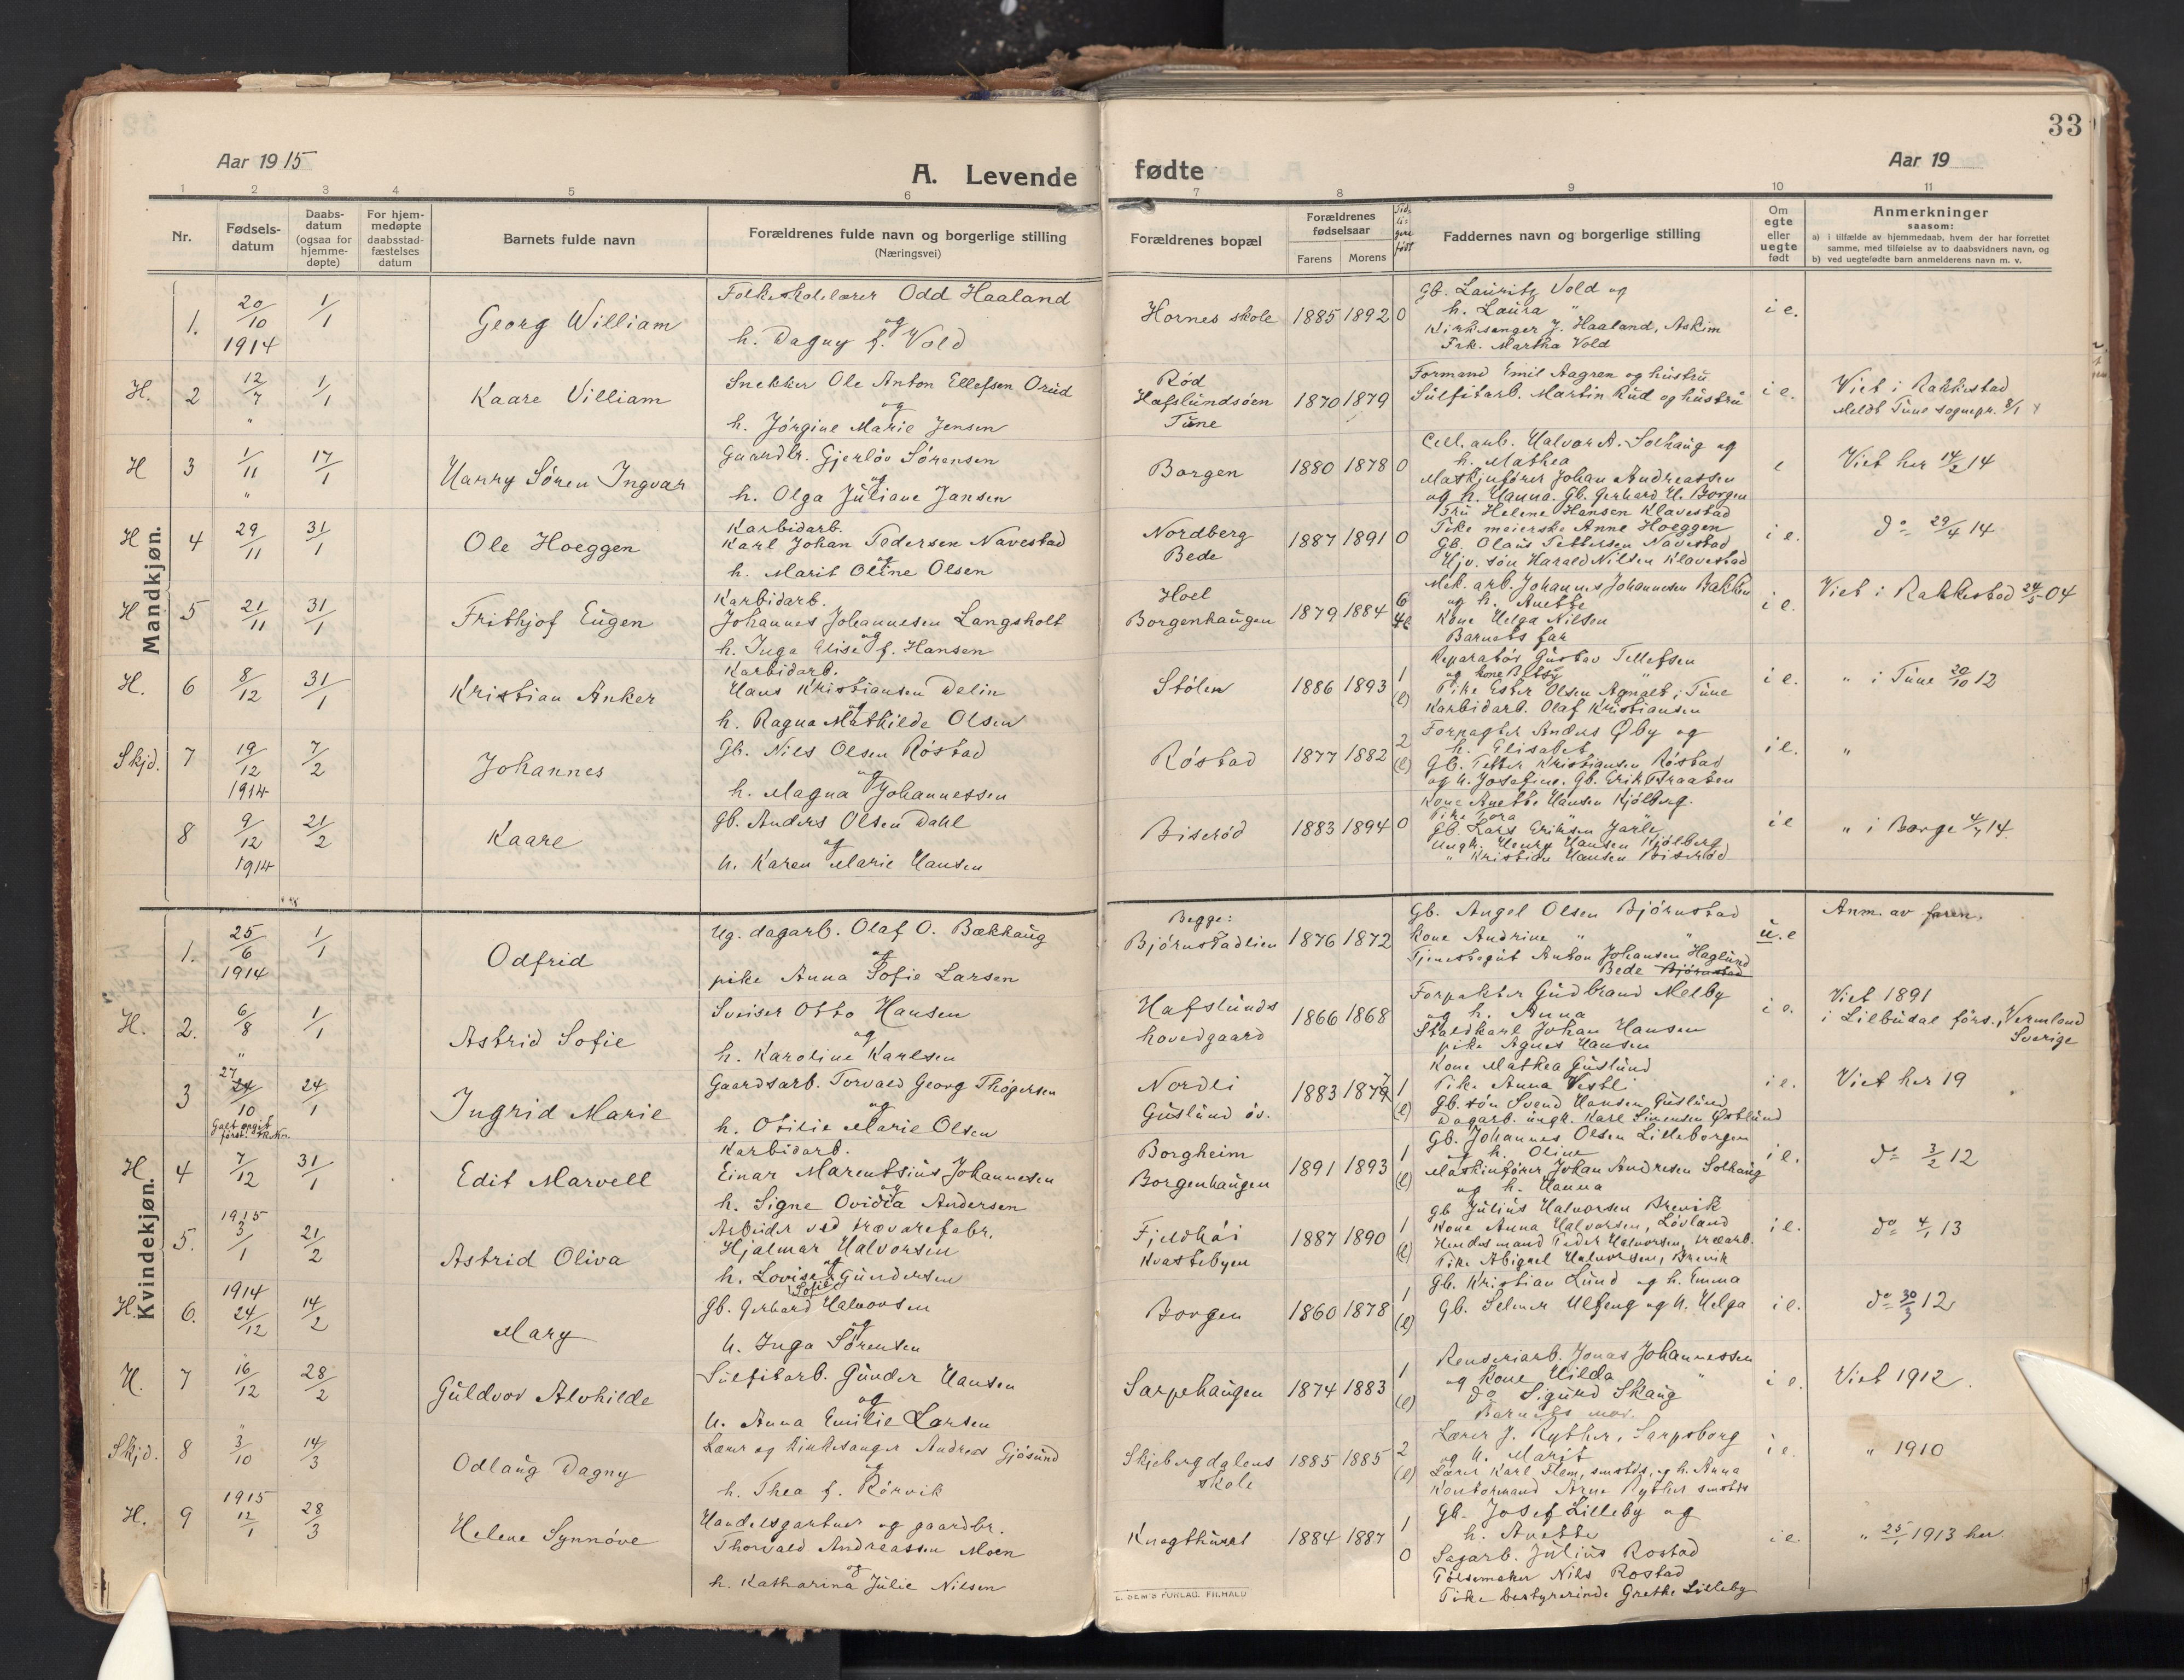 33
Aar 1915
A. Levende fødte
Aar 19
1 2 3 4 5 6 7 8 9 10 11
Nr.
Fødsels-
datum
Daabs-
datum
(ogsaa for
hjemme-
døpte)
For hjem-
medøpte
daabsstad-
fæstelses
datum
Barnets fulde navn
Forældrenes fulde navn og borgerlige stilling
(Næringsvei)
Forældrenes bopæl
Forældrenes
fødselsaar
Farens Morens
Tid-
li-
gere
født
Faddernes navn og borgerlige stilling
Om
egte
eller
uegte
født
Anmerkninger
saasom:
a) i tilfælde av hjemmedaab, hvem der har forrettet
samme, med tilføielse av to daabsvidners navn, og
b) ved uegtefødte barn anmelderens navn m. v.
Mandkjøn.
1. 20/10 1914 1/1
Georg William
Folkeskolelærer Odd Haaland
og
h. Dagny f. Vold
Hornes skole 1885 1892 0
Gb. Lauritz Vold og
h. Laura "
Kirkesanger J. Haaland, Askim
Frk. Martha Vold
i e.
H. 2 12/7 " 1/1
Kaare Villiam
Snekker Ole Anton Ellefsen Orud
og
h. Jørgine Marie Jensen
Rød
Hafslundsøen
Tune
1870 1879
Formand Emil Aagren og hustru
Sulfitarb. Martin Rud og hustru
i e.
Viet i Rakkestad
Meldt Tune sognepr. 8/1
H 3 1/11 " 17/1
Harry Søren Ingvar
Gaardbr. Gjerløv Sørensen
og
h. Olga Juliane Jansen
Borgen 1880 1878 0
Cell. arb. Halvor A. Solhaug og
h. Mathea
Maskinfører Johan Andreassen
og h. Hanna. Gb. Gerhard H. Borgen
e
Viet her 14/2 14
H 4 29/11 31/1
Ole Hoeggen
Karbidarb.
Karl Johan Pedersen Navestad
og
h. Marit Oline Olsen
Nordberg
Bede
1887 1891 0
Fru Helene Hansen Klavestad
Pike meierske Anne Hoeggen
Gb. Olaus Pettersen Navestad
Hjv. søn Harald Nilsen Klavestad
i e.
do 29/4 14
H 5 21/11 31/1
Frithjof Eugen
Karbidarb.
Johannes Johannesen Langsholt
og
h. Inga Elise f. Hansen
Hoel
Borgenhaugen
1879 1884 6
Mek. arb. Johannes Johannesen Bakken
og h. Anette
Kone Helga Nilsen
Barnets far
i e.
Viet i Rakkestad 24/5 04
H. 6 8/12 31/1
Kristian Anker
Karbidarb.
Hans Kristiansen Delin
og
h. Ragna Mathilde Olsen
Stølen 1886 1893 1 (e)
Reparatør Gustav Tellefsen
og kone Betsy "
Pike Ester Olsen Agnalt, Tune
Karbidarb. Olaf Kristiansen
i e.
" i Tune 20/10 12
Skjd. 7 19/12 1914 7/2
Johannes
Gb. Nils Olsen Røstad
og
h. Magna Johannessen
Røstad 1877 1882 2 (e)
Forpagter Anders Øby og
h. Elisabet
Gb. Petter Kristiansen Røstad
og h. Josefine. Gb. Erik Braaten
i e.
"
8 9/12 1914 21/2
Kaare
Gb. Anders Olsen Dahl
og
h. Karen Marie Hansen
Biserød 1883 1894 0
Kone Anette Hansen Kjølberg.
Pike Tora "
Gb. Lars Eriksen Jarle
Ungk. Henry Hansen Kjølberg
" Kristian Hansen Biserød
i e
" i Borge 4/7 14
Kvindekjøn.
1. 25/6 1914 1/1
Odfrid
Ug. dagarb. Olaf O. Bækhaug
og
pike Anna Sofie Larsen
Begge:
Bjørnstadlien
1876 1872
Gb. Angel Olsen Bjørnstad
Kone Andrine " "
Tjenestegut Anton Johansen Haglund
Bede Bjørnstad
u. e
Anm. av faren.
H. 2. 6/8 " 1/1
Astrid Sofie
Sveiser Otto Hansen
og
h. Karoline Karlsen
Hafslunds
hovedgaard
1866 1868
Forpakter Gudbrand Melby
og h. Anna
Staldkarl Johan Hansen
pike Agnes Hansen
i e.
Viet 1891
i Lilbudal førs., Vermland
Sverige
3 27 24/10 24/1
Galt opgit
Ingrid Marie
Gaardsarb. Torvald Georg Thøgersen
og
h. Otilie Marie Olsen
Nordli
Guslund øv.
1883 1879 7 1 (e)
Kone Mathea Guslund
Pike Anna Vestli
Gb. søn Svend Hansen Guslund
Dagarb. ungk. Karl Simensen Østlund
i e.
Viet her 19
H 4 7/12 31/1
Edit Marvell
Karbidarb.
Einar Marentsius Johannesen
og
h. Signe Ovidia Andersen
Borgheim
Borgenhaugen
1891 1893 1 (e)
Gb. Johannes Olsen Lilleborgen
og h. Oline
Maskinfører Johan Andresen Solhaug
og h. Hanna
i e.
do 3/2 12
5. 1915 3/1 21/2
Astrid Oliva
Arbeider ved trævarefabr.
Hjalmar Halvorsen
og
h. Lovise Gundersen
Sofie
Fjeldhøi
Kvastebyen
1887 1890 1 (e)
Gb Julius Halvorsen Brevik
Kone Anna Halvorsen, Løvland
Hendes mand Peder Halvorsen, træarb.
Pike Abigael Halvorsen, Brevik
i e.
do 4/1 13
H. 6. 1914 24/12 14/2
Mary
Gb. Gerhard Halvorsen
og
h. Inga Sørensen
Borgen 1860 1878 1 (e)
Gb. Kristian Lund og h. Emma
Gb. Selmer Ulfeng og h. Helga
i e.
do 30/3 12
H. 7 16/12 28/2
Guldvor Alvhilde
Sulfitarb. Gunder Hansen
og
h. Anna Emilie Larsen
Sarpehaugen 1874 1883 1 (e)
Renseriarb. Jonas Johannessen
og kone Hilda "
do Sigurd Skaug
Barnets mor.
i e.
Viet 1912.
Skjd. 8 " 3/10 14/3
Odlaug Dagny
Lærer og kirkesanger Andreas Gjøsund
og
h. Thea f. Rørvik
Skjebergdalens
skole
1885 1885 2 (e)
Lærer J. Ryther, Sarpsborg
og h. Marit
Lærer Karl Flem, smstds, og h. Anna
Kontormand Arne Ryther smstds
i e.
" 1910
H. 9 1915 12/1 28/3
Helene Synnøve
Handelsgartner og gaardbr.
Thorvald Andreassen Moen
og
h. Katharina Julie Nilsen
Knagthuset 1884 1887 1 0
Gb. Josef Lilleby og
h. Anette
Sagarb. Julius Rostad
Pølsemaker Nils Rostad
Pike bestyrerinde Grethe Lilleby
i e.
" 25/1 1913 her
E. SEM'S FORLAG. FR.HALD